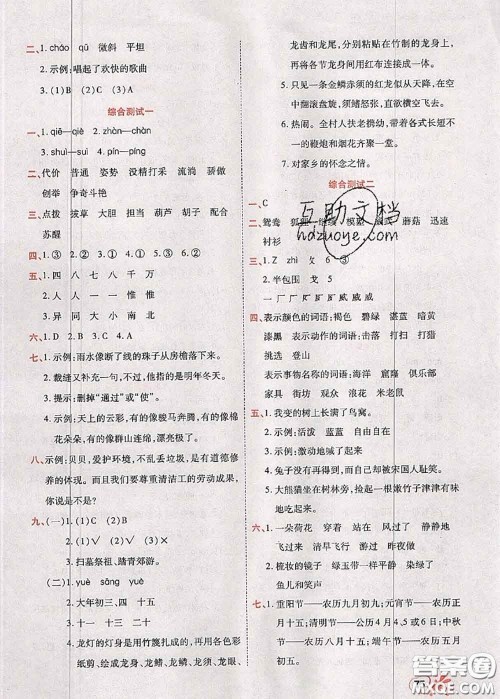 二、1. chǎo qū 微斜 平坦
2. 示例:唱起了欢快的歌曲
3. (1)B (2)C (3)A
综合测试一
一、1. qiē—qiè 2. zhàn—chàn
3. shuì—suì 4. pín—píng
二、代价 普通 姿势 没精打采 流动 骄傲
创举 争奇斗艳
三、点拨 拔草 大胆 担当 葫芦 胡子 配合
苏醒
四、1. ③ ① ② 2. ④ ② ③ ①
五、1. 四 八 七 八 千 万
2. 人 人 一 一 惟 惟
3. 异 同 大 小 南 北
六、1. D 2. C 3. A 4. B
七、1. 示例:雨水像断了线的珠子从房檐落下来。
2. 裁缝又补充一句,不,我是指明年冬天。
3. 提示:删掉“通过”或“使”。
4. 示例:天上的云彩,有的像骏马奔腾,有的像棉
花朵朵,有的像群山连绵,漂亮极了。
八、示例:贝贝,爱护环境,不乱丢垃圾,是有道德修
养的体现。而且我们要尊重清洁工的劳动成果,
你说是不是?
九、(一)1. (1)C (2)B
2. √ √ √
3. 扫墓祭祖、踏青郊游。
(二)1. yuè sāng yuè
2. 大年初三 四 十五
3. 十一 一 四 十 十五
4. 龙灯的灯身是用竹篾扎成的,再用各色彩
纸剪、绘成龙身、龙鳞、龙鳍、龙须、龙眼、
龙齿和龙尾,分别粘贴在竹制的龙身上,
再将各节龙身间用红布连接成一体。
5. 一条条的金鳞赤须的红龙似从天降,在空中
回旋、盘旋,须鳍怒张,直欲腾空而去。
6. 热闹。全村人扶老携幼,带着各式长短不
一的鞭炮和烟花齐聚一堂。
7. 对家乡的怀念之情。
综合测试二
一、C
二、鸳鸯 蘑菇 迅速
衬衫
三、1. Z zhì 6 ③
2. 半包围 戈 5
四、表示颜色的词语:褐色 碧绿 湛蓝 暗黄
漆黑 表示动作的词语:击落 打扫 打猎
挑选 登山
表示事物名称的词语:海鸥 窗扉 俱乐部
家具 麦浪 浪花 米老鼠
五、1. 我变的树上长满了鸟窝。
2. 示例:活泼 蓝蓝 自由自在
3. 示例:激动地喊了起来。
4. 兔子没有再得到,而自己却被宋国人耻笑。
5. 大熊猫坐在树林旁,捡起一根嫩竹子津津有味
地吃起来。
六、1. 一朵荷花 穿着 站在 风过了 静静地
飞过来 游过 昨夜
2. 梳妆的镜子 绿玉带一样平静 染绿了
鱼儿和笑声
七、重阳节——农历九月初九;元宵节——农历正
月十五;清明节——公历4月5或6日;中秋
节——农历八月十五;端午节——农历五月
初五。
互助文档
hdzuoye.com
答案圈
MXQE.COM